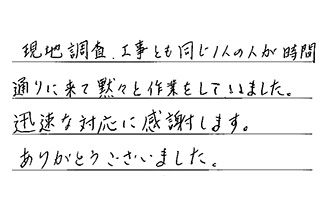 現地調査、工事とも同じ1人の人が時間
通りに来て黙々と作業をしていました。
迅速な対応に感謝します。
ありがとうございました。